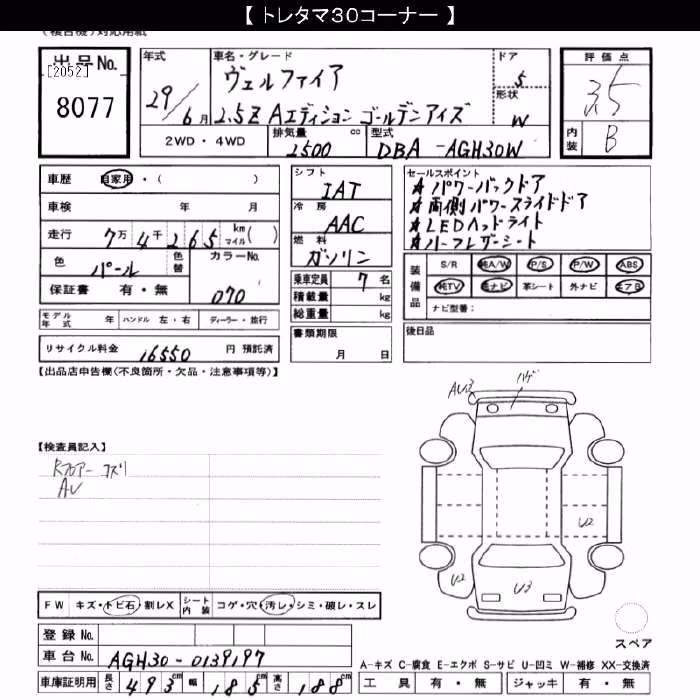 【 トレタマ30コーナー 】
(複合機)対応用紙
出品No.
[2052]
8077
年式 車名・グレード ドア
29/6月 ヴェルファイア 5
2.5Z Aエディション ゴールデンアイズ
形状 W
2WD・4WD 排気量 cc 型式
2500 DBA -AGH30W
評価点
3.5
内装 B
車歴 自家用・( )
車検 年 月
走行 7万4千265 km マイル( )
色 パール 色替 カラーNo.
保証書 有・無 070
モデル年式 年 ハンドル 左・右 ディーラー・並行
リサイクル料金 16550 円 預託済
シフト IAT
冷房 AAC
燃料 ガソリン
乗車定員 7 名
積載量 kg
総重量 kg
書類期限
月 日
セールスポイント
★パワーバックドア
★両側パワースライドドア
★LEDヘッドライト
★ハーフレザーシート
装備品 S/R 純A/W P/S P/W ABS
純TV 純ナビ 革シート 外ナビ エアB
ナビ型番:
後日品
【出品店申告欄(不良箇所・欠品・注意事項等)】
【検査員記入】
Rフロアー コスリ
AU
AU3 ハゲ
U2
U2
U3
スペア
FW キズ・トビ石・割レX シート内装 コゲ・穴・汚レ・シミ・破レ・スレ
登録No.
車台No. AGH30-0139197
車庫証明用 長さ 493 cm 幅 185 cm 高さ 188 cm
A-キズ C-腐食 E-エクボ S-サビ U-凹ミ W-補修 XX-交換済
工具 有・無 ジャッキ 有・無